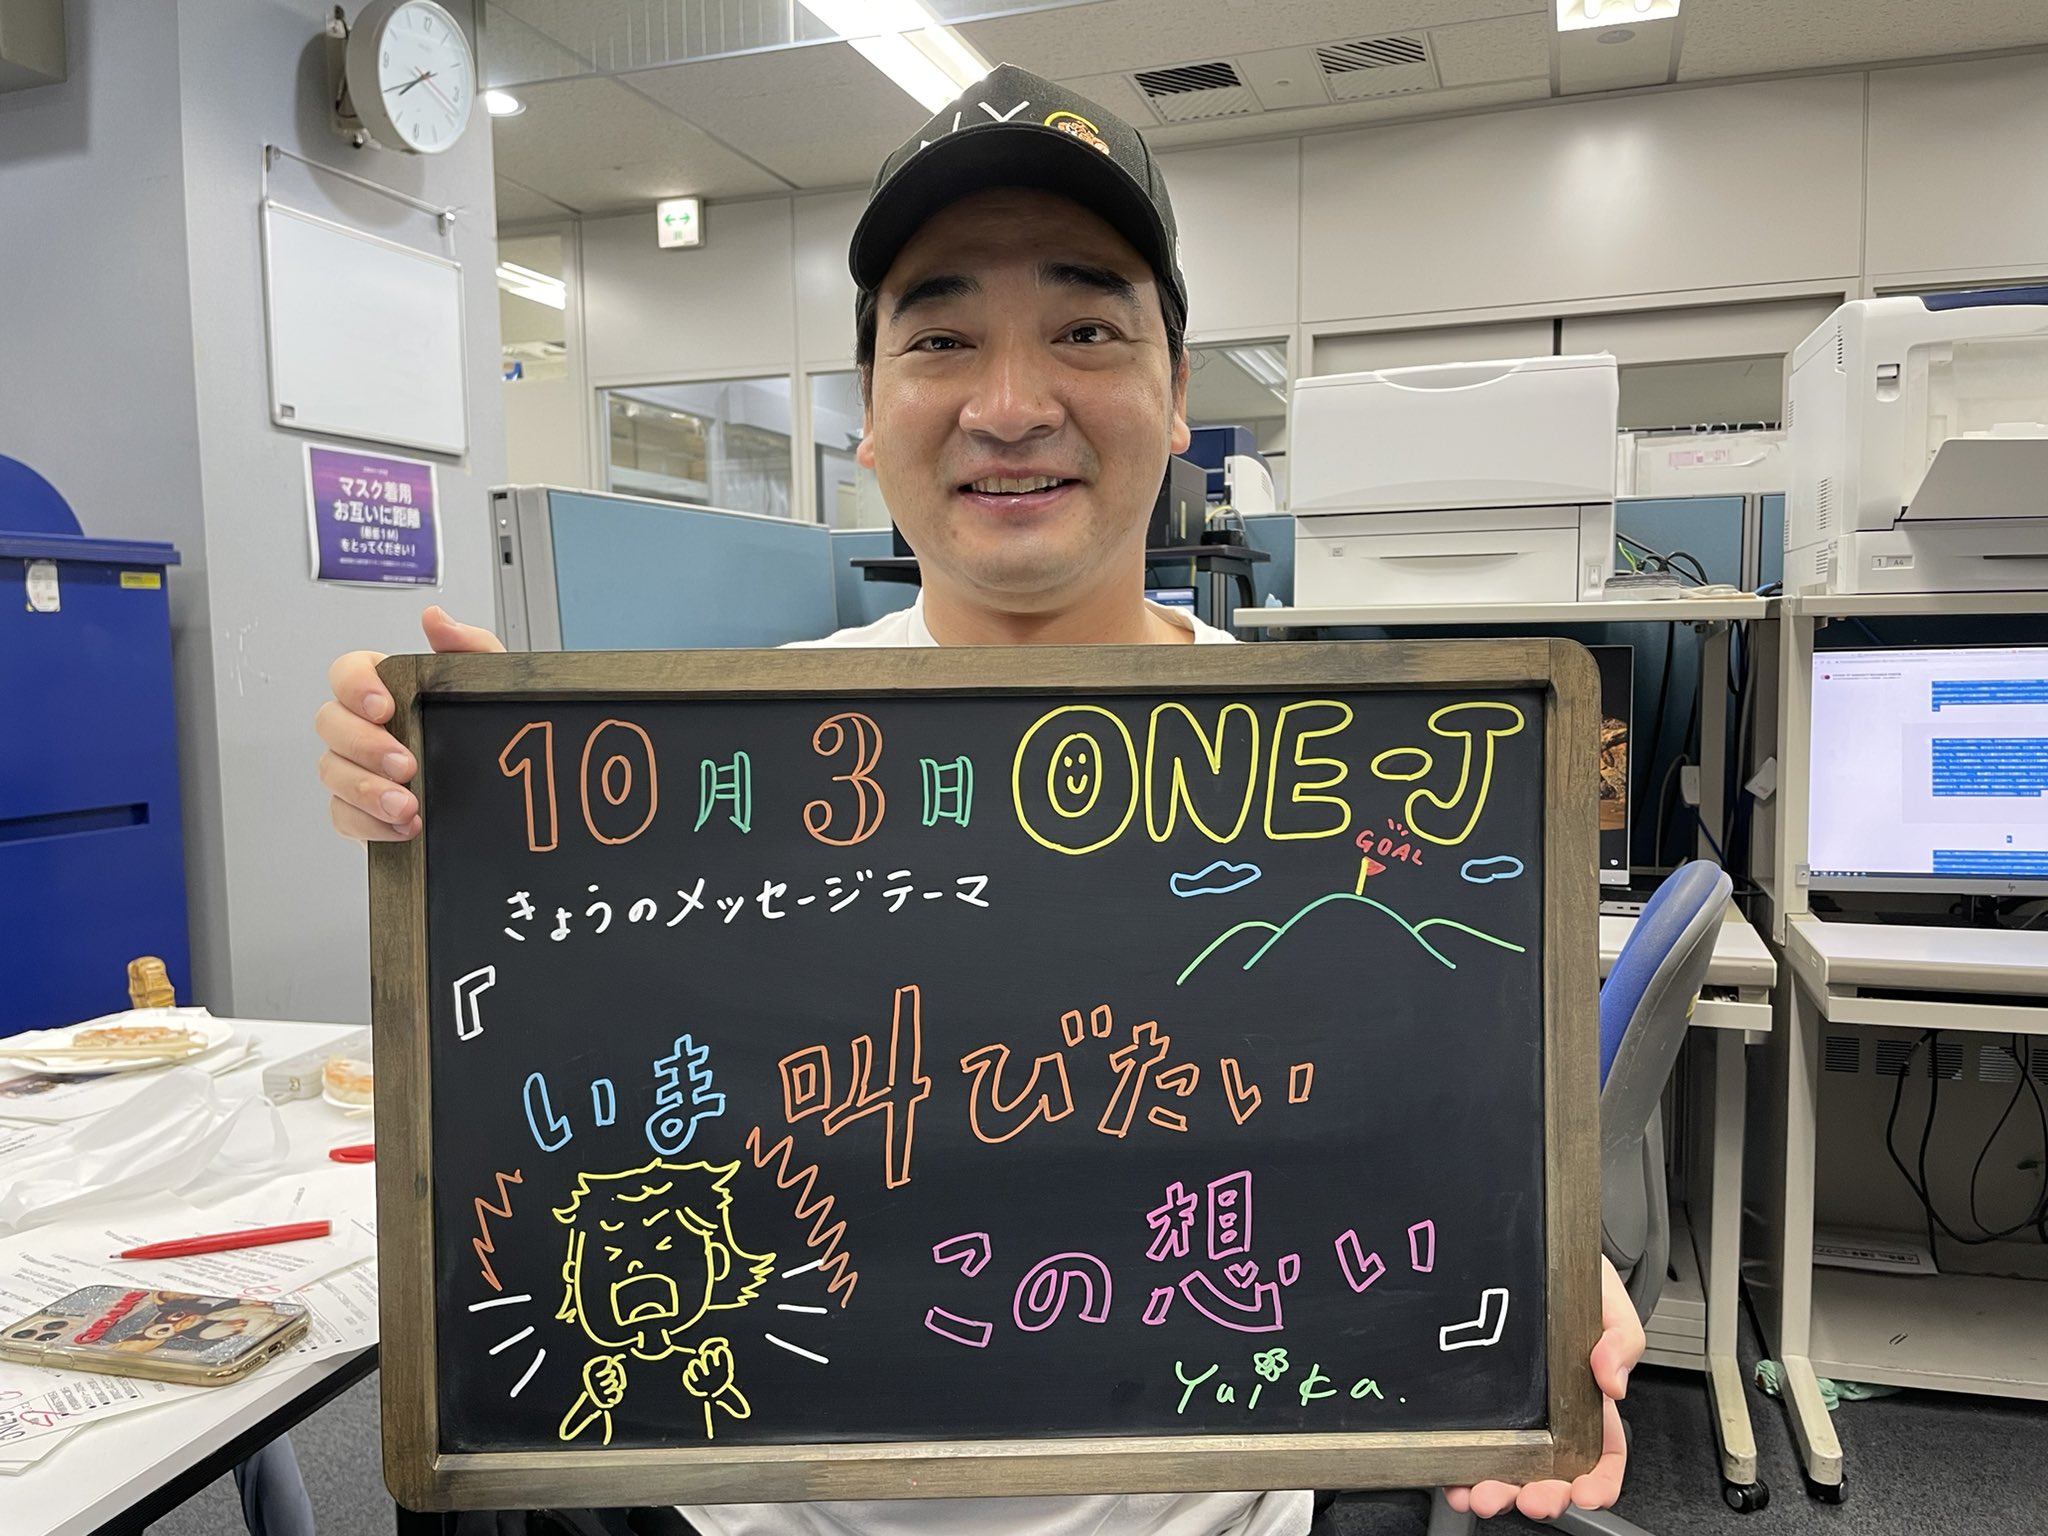 マスク着用
お互いに距離
(最低1M)
をとってください!
10月3日 ONE-J
GOAL
きょうのメッセージテーマ
『
いま叫びたい
この想い
』
Yuika.